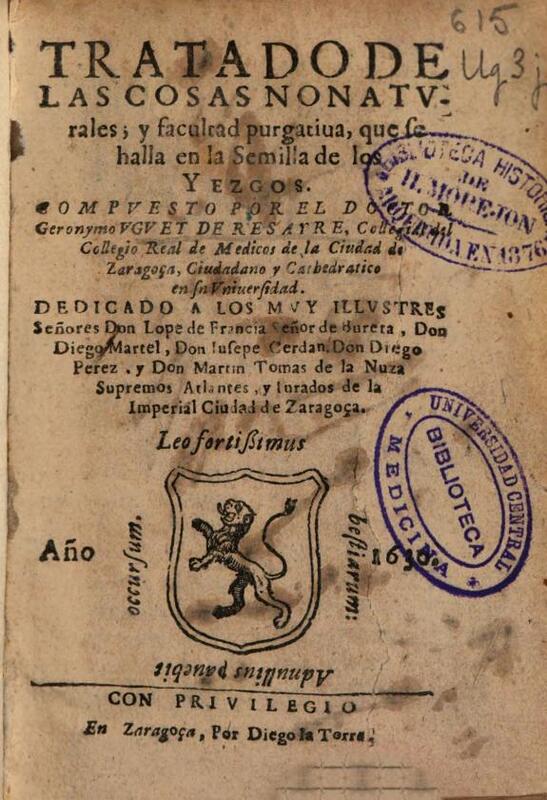 615
Ug3j
TRATADO DE
LAS COSAS NONATV-
rales; y facultad purgatiua, que se
halla en la Semilla de los
YEZGOS.
COMPVESTO POR EL DOCTOR
Geronymo VGVET DE RESAYRE, Collegial del
Collegio Real de Medicos de la Ciudad de
Zaragoça, Ciudadano y Cathedratico
en su Vniuersidad.
DEDICADO A LOS MVY ILLVSTRES
Señores Don Lope de Francia Señor de Bureta, Don
Diego Martel, Don Iusepe Cerdan. Don Diego
Perez, y Don Martin Tomas de la Nuza
Supremos Atlantes, y Iurados de la
Imperial Ciudad de Zaragoça.
Leo fortißimus
bestiarum:
Ad nullius pauebit
occursum.
Año
CON PRIVILEGIO
En Zaragoça, Por Diego la Torre,
BIBLIOTECA
DE
H. MOREJON
EN 1876
UNIVERSIDAD CENTRAL
BIBLIOTECA
MEDICINA